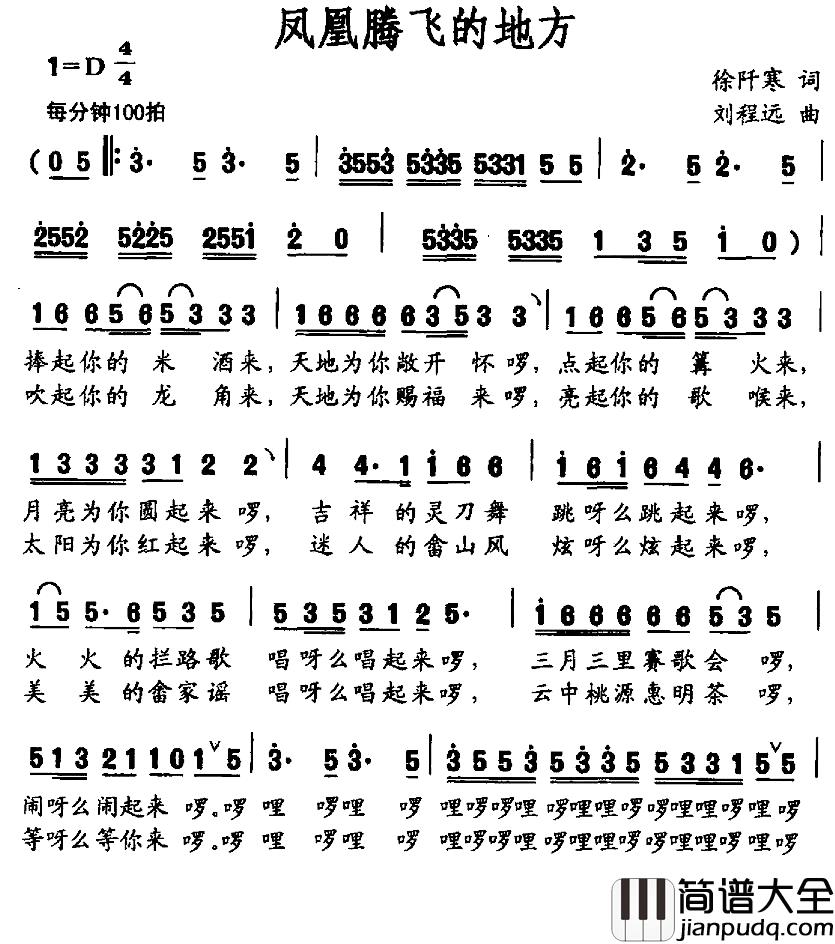 凤凰腾飞的地方
1=D 4/4
徐阡寒 词
每分钟100拍
刘程远 曲
( 0 5 ‖: 3· 5 3· 5 | 3553 5335 5331 5 5 | 2· 5 2· 5 |
2552 5225 2551 2 0 | 5335 5335 1 3 5 1 0 )
1 6 6 5 6 5 3 3 3 | 1 6 6 6 6 6 3 5 3 3 | 1 6 6 5 6 5 3 3 3 |
捧起你的 米 酒来, 天地为你敞开 怀啰, 点起你的 篝 火来,
吹起你的 龙 角来, 天地为你赐福 来啰, 亮起你的 歌 喉来,
1 3 3 3 3 1 2 2 | 4 4· 1 1 6 6 | 1 6 1 6 4 4 6·
月亮为你圆起来 啰, 吉 祥 的灵刀舞 跳呀么跳起来啰,
太阳为你红起来 啰, 迷 人 的畲山风 炫呀么炫起来啰,
1 5 5· 6 5 3 5 | 5 3 5 3 1 2 5· | 1 6 6 6 6 6 5 3 5 |
火 火 的拦路歌 唱呀么唱起来啰, 三月三里赛歌会 啰,
美 美 的畲家谣 唱呀么唱起来啰, 云中桃源惠明茶 啰,
5 1 3 2 1 1 0 1 ∨ 5 | 3· 5 3· 5 | 3 5 5 3 5 3 3 5 5 3 3 1 5 ∨ 5
闹呀么闹起来 啰。啰 哩 啰哩 啰 哩啰啰哩 啰哩哩啰啰哩哩啰哩啰
等呀么等你来 啰。啰 哩 啰哩 啰 哩啰啰哩 啰哩哩啰啰哩哩啰哩啰
简谱大全
jianpudq.com